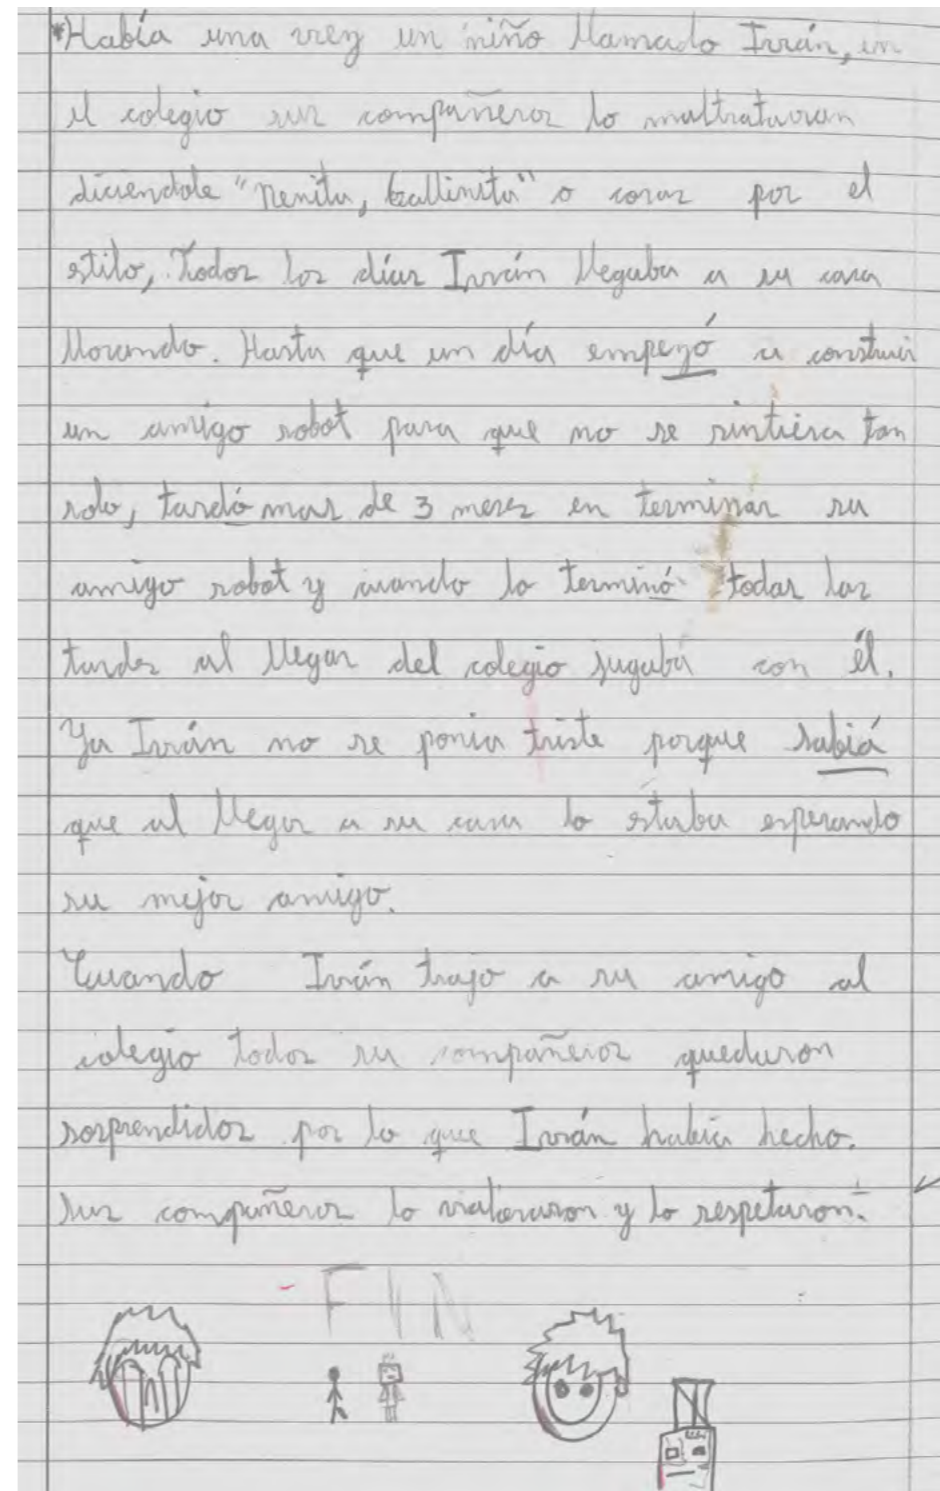 *Había una vez un niño llamado Iván, en
el colegio sus compañeros lo maltrataban
diciendole "nenita, gallinita" o cosas por el
estilo, Todos los días Iván llegaba a su casa
llorando. Hasta que un día empezó a construir
un amigo robot para que no se sintiera tan
solo, tardó mas de 3 meses en terminar su
amigo robot y cuando lo terminó todas las
tardes al llegar del colegio jugaba con él.
Ya Iván no se ponia triste porque sabiá
que al llegar a su casa lo estaba esperando
su mejor amigo.
Cuando Iván trajo a su amigo al
colegio todos su compañeros quedaron
sorprendidos por lo que Iván había hecho.
Sus compañeros lo valoraron y lo respetaron.
FIN